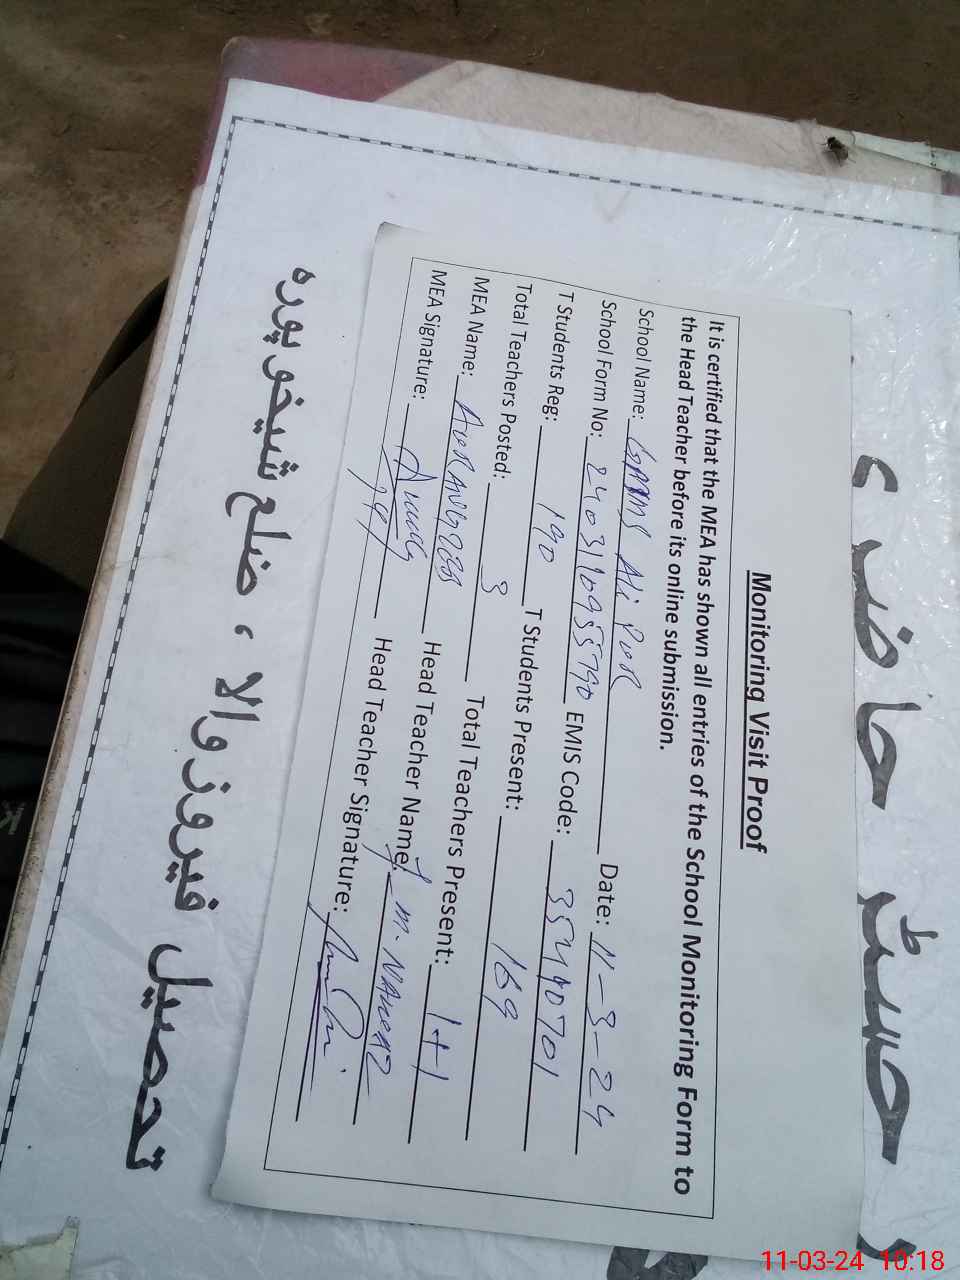 رجسٹر حاضری
Monitoring Visit Proof
It is certified that the MEA has shown all entries of the School Monitoring Form to
the Head Teacher before its online submission.
School Name: Ali PUR Date: 11-3-24
School Form No: EMIS Code: 35410701
T Students Reg: 190 T Students Present: 169
Total Teachers Posted: 3 Total Teachers Present: 1+1
MEA Name: AURANGZEB Head Teacher Name: M. NAWAZ
MEA Signature: Head Teacher Signature:
تحصیل فیروزوالا ، ضلع شیخوپورہ
11-03-24 10:18